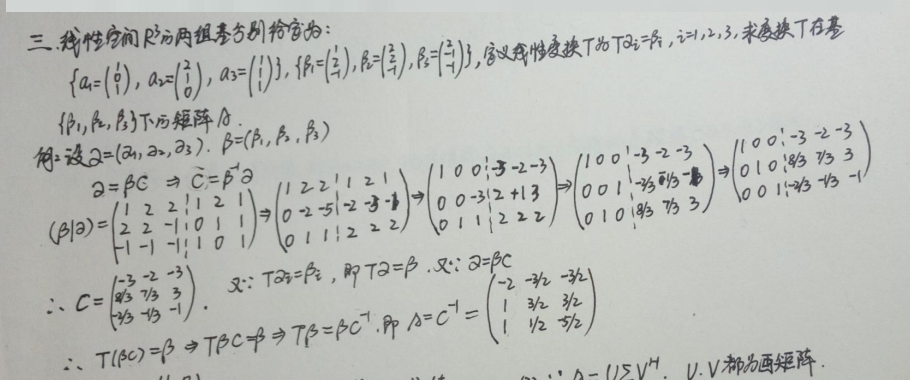 三. 线性空间R³的两组基分别给定为:
{α₁=(1 0 1), α₂=(2 1 0), α₃=(1 1 1)}, {β₁=(1 2 -1), β₂=(2 2 -1), β₃=(2 -1 -1)}, 定义线性变换T为Tαᵢ=βᵢ, i=1,2,3, 求变换T在基
{β₁, β₂, β₃}下的矩阵A.
解: 设α=(α₁, α₂, α₃). β=(β₁, β₂, β₃)
α=βC ⇒ C=β⁻¹α
(β|α)=(1 2 2 | 1 2 1; 2 2 -1 | 0 1 1; -1 -1 -1 | 1 0 1) ⇒ (1 2 2 | 1 2 1; 0 -2 -5 | -2 -3 -1; 0 1 1 | 2 2 2) ⇒ (1 0 0 | -3 -2 -3; 0 0 -3 | 2 +1 3; 0 1 1 | 2 2 2) ⇒ (1 0 0 | -3 -2 -3; 0 0 1 | -2/3 -1/3 -1; 0 1 0 | 8/3 7/3 3) ⇒ (1 0 0 | -3 -2 -3; 0 1 0 | 8/3 7/3 3; 0 0 1 | -2/3 -1/3 -1)
∴ C=(-3 -2 -3; 8/3 7/3 3; -2/3 -1/3 -1). 又∵ Tαᵢ=βᵢ, 即Tα=β. 又∵ α=βC
∴ T(βC)=β ⇒ TβC=β ⇒ Tβ=βC⁻¹. 即 A=C⁻¹=(-2 -3/2 -3/2; 1 3/2 3/2; 1 1/2 -5/2)
∵ A=UΣVᴴ. U.V都为酉矩阵.